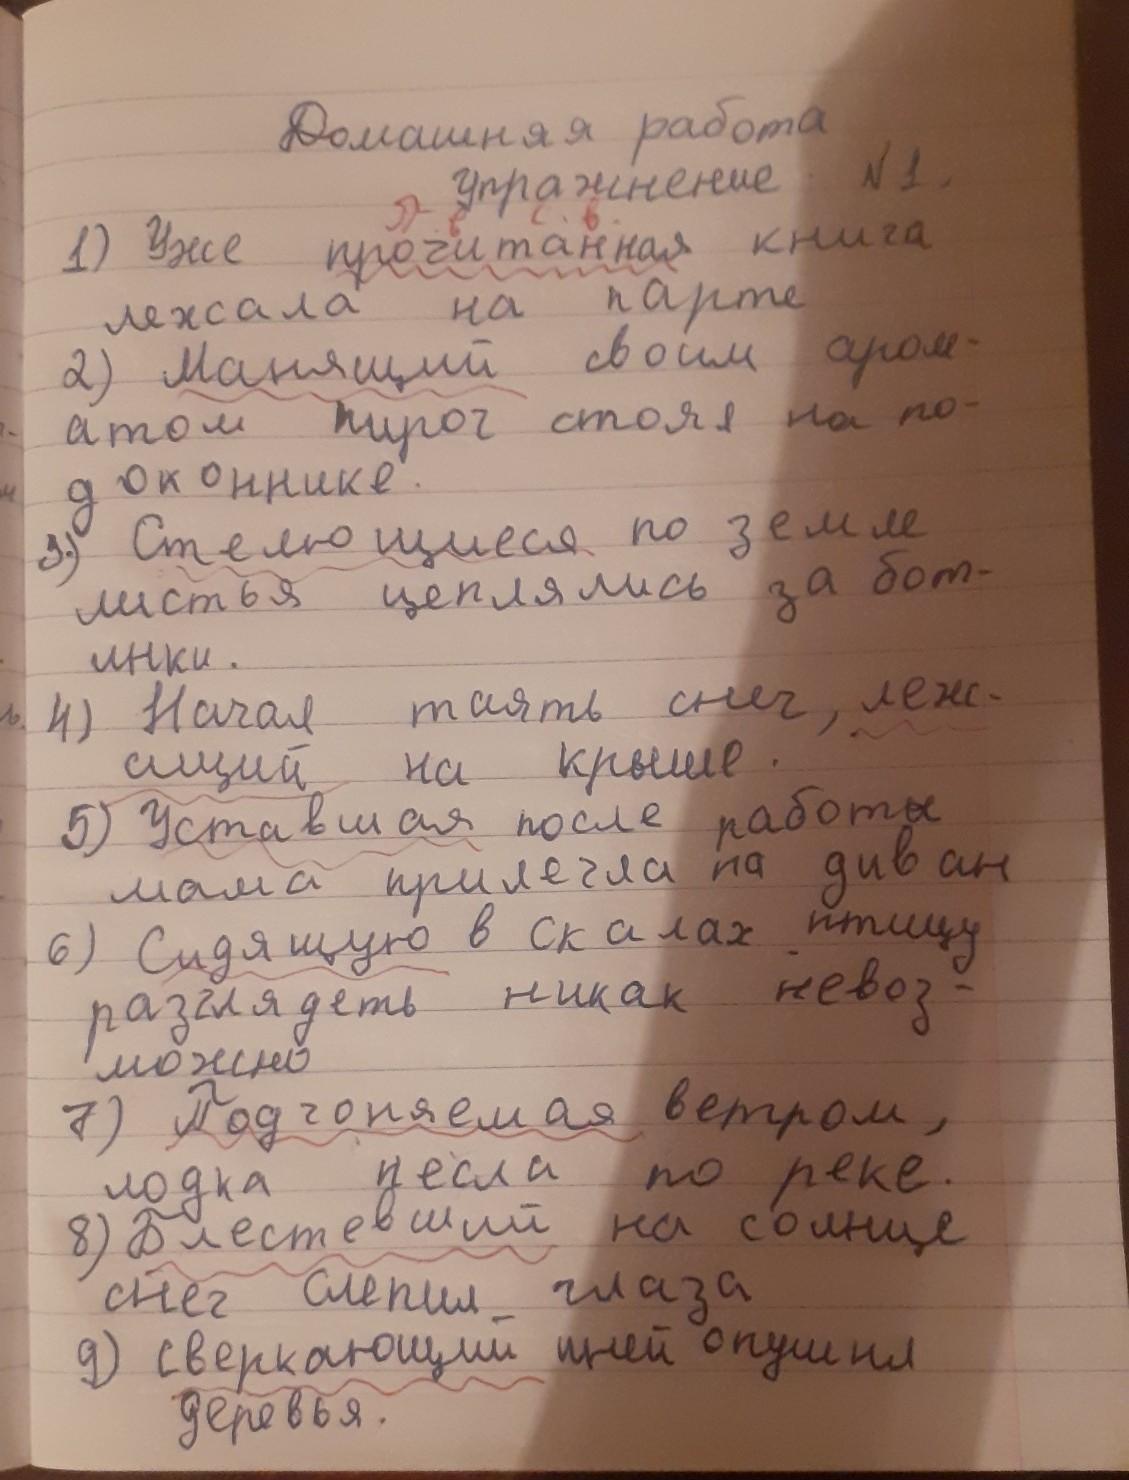 Домашняя работа
Упражнение №1.
п в с в
1) Уже прочитанная книга
лежала на парте
2) Манящий своим аром-
атом пирог стоял на по-
доконнике.
3) Стелющиеся по земле
листья цеплялись за бот-
инки.
4) Начал таять снег, леж-
ащий на крыше.
5) Уставшая после работы
мама прилегла на диван
6) Сидящую в скалах птицу
разглядеть никак невоз-
можно
7) Подгоняемая ветром,
лодка несла по реке.
8) Блестевший на солнце
снег слепил глаза
9) сверкающий иней опушил
деревья.